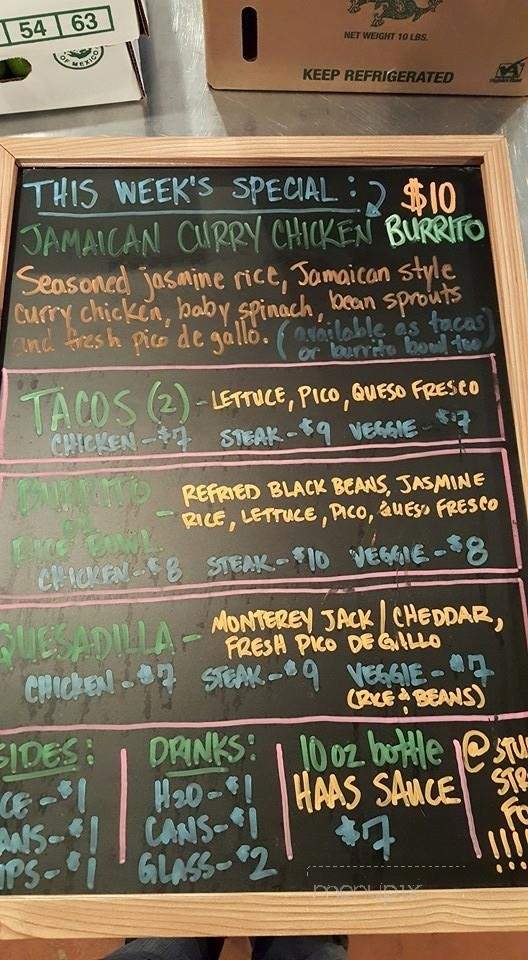 54 63
OF MEXICO
NET WEIGHT 10 LBS.
KEEP REFRIGERATED
THIS WEEK'S SPECIAL: $10
JAMAICAN CURRY CHICKEN BURRITO
Seasoned jasmine rice, Jamaican style
curry chicken, baby spinach, bean sprouts
and fresh pico de gallo. (available as tacos
or burrito bowl too)
TACOS (2) - LETTUCE, PICO, QUESO FRESCO
CHICKEN - $7 STEAK - $9 VEGGIE - $7
BURRITO
or
RICE BOWL
- REFRIED BLACK BEANS, JASMINE
RICE, LETTUCE, PICO, QUESO FRESCO
CHICKEN - $8 STEAK - $10 VEGGIE - $8
QUESADILLA - MONTEREY JACK / CHEDDAR,
FRESH PICO DE GALLO
CHICKEN - $7 STEAK - $9 VEGGIE - $7
(RICE & BEANS)
SIDES:
CE - $1
ANS - $1
IPS - $1
DRINKS:
H2O - $1
CANS - $1
GLASS - $2
10 oz bottle
HAAS SAUCE
$7
@ STU
STR
FO
!!!!
menupix